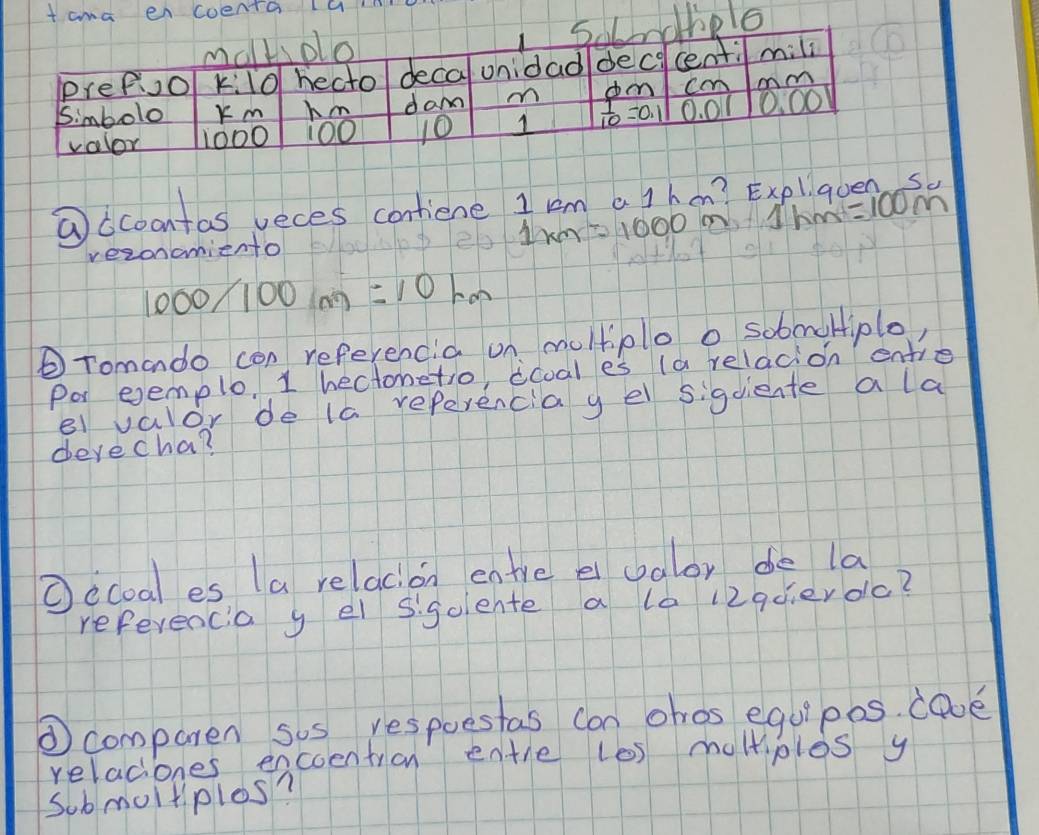 tama en coenta la
moltiplo Submoltiplo
prefijo kilo hecto deca unidad deci centi mili
Simbolo Km hm dam m dm cm mm
valor 1000 100 10 1 1/10=0.1 0.01 0.001
a) ¿Coantas veces contiene 1 km a 1 hm? Expliquen su
rezonamiento 1km=1000 m 1hm=100m
1000/100 m = 10 hm
b) Tomando con referencia un moltiplo o sobmoltiplo,
Por ejemplo, 1 hectometro, ¿cual es la relación entre
el valor de la referencia y el sigoiente a la
derecha?
c) ¿coal es la relación entre el valor de la
referencia y el sigoiente a la izqoierda?
d) comparen sus respoestas con otros equipos. ¿Qué
relaciones encoentran entre los moltiplos y
submoltiplos?